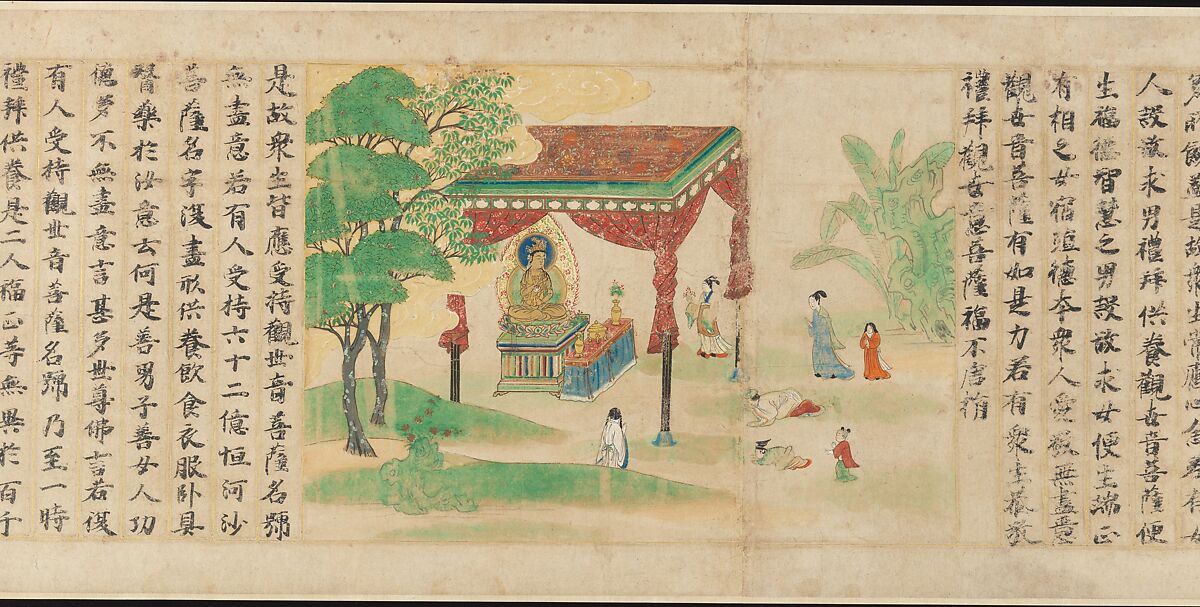 所饒益是故衆生常應心念若有女
人設欲求男禮拜供養觀世音菩薩便
生福德智慧之男設欲求女便生端正
有相之女宿殖德本衆人愛敬無盡意
觀世音菩薩有如是力若有衆生恭敬
禮拜觀世音菩薩福不唐捐
是故衆生皆應受持觀世音菩薩名號
無盡意若有人受持六十二億恒河沙
菩薩名字復盡形供養飲食衣服卧具
醫藥於汝意云何是善男子善女人功
德多不無盡意言甚多世尊佛言若復
有人受持觀世音菩薩名號乃至一時
禮拜供養是二人福正等無異於百千